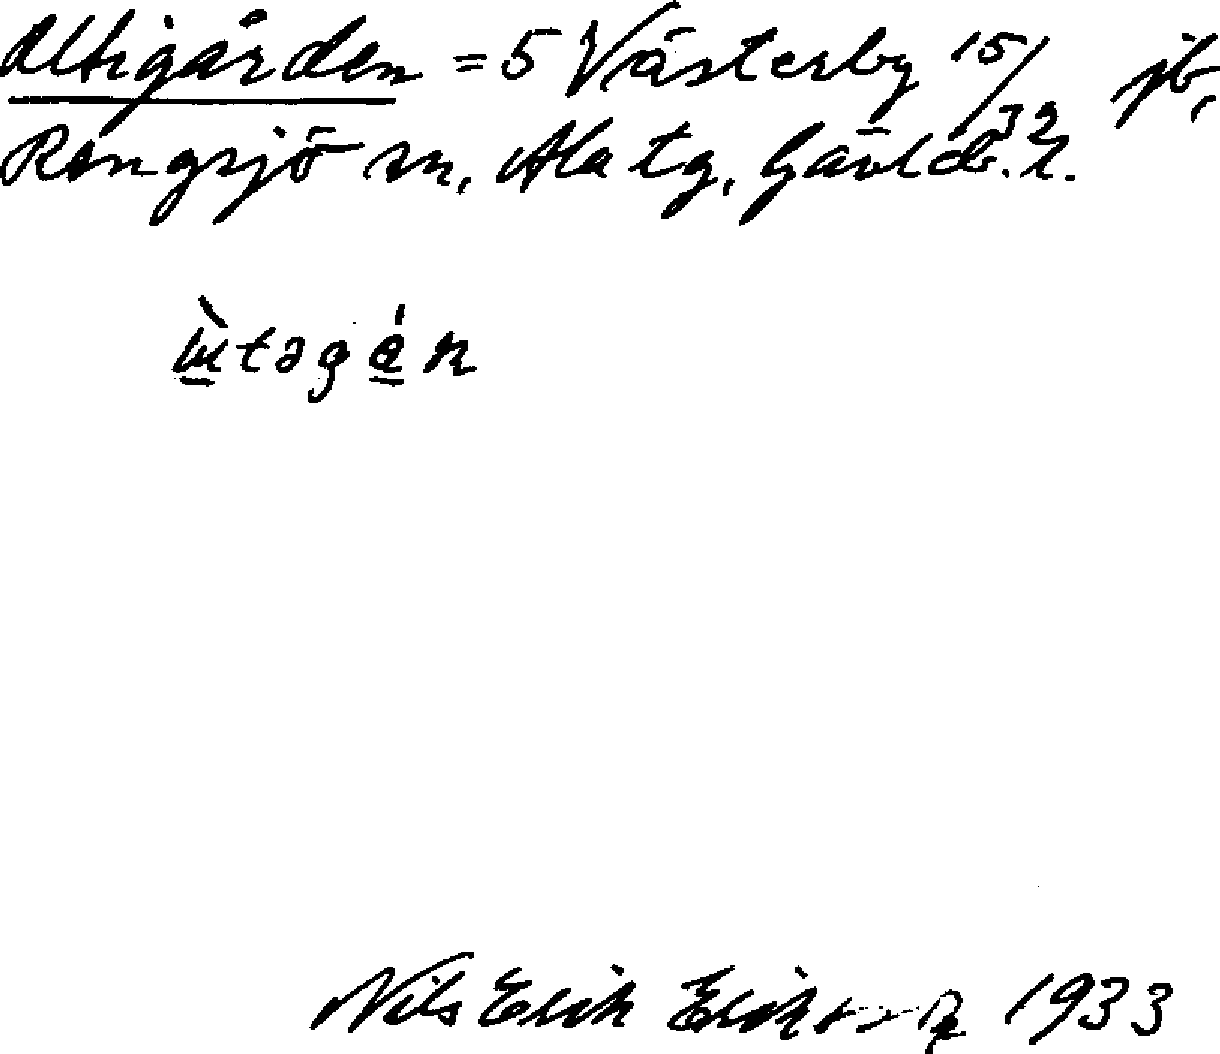 Uttigården = 5 Västerby 15/32 jb,
Rengsjö sn, Ala tg, Gävleb. l.
ùtəgán
Nils Erik Erikson 1933